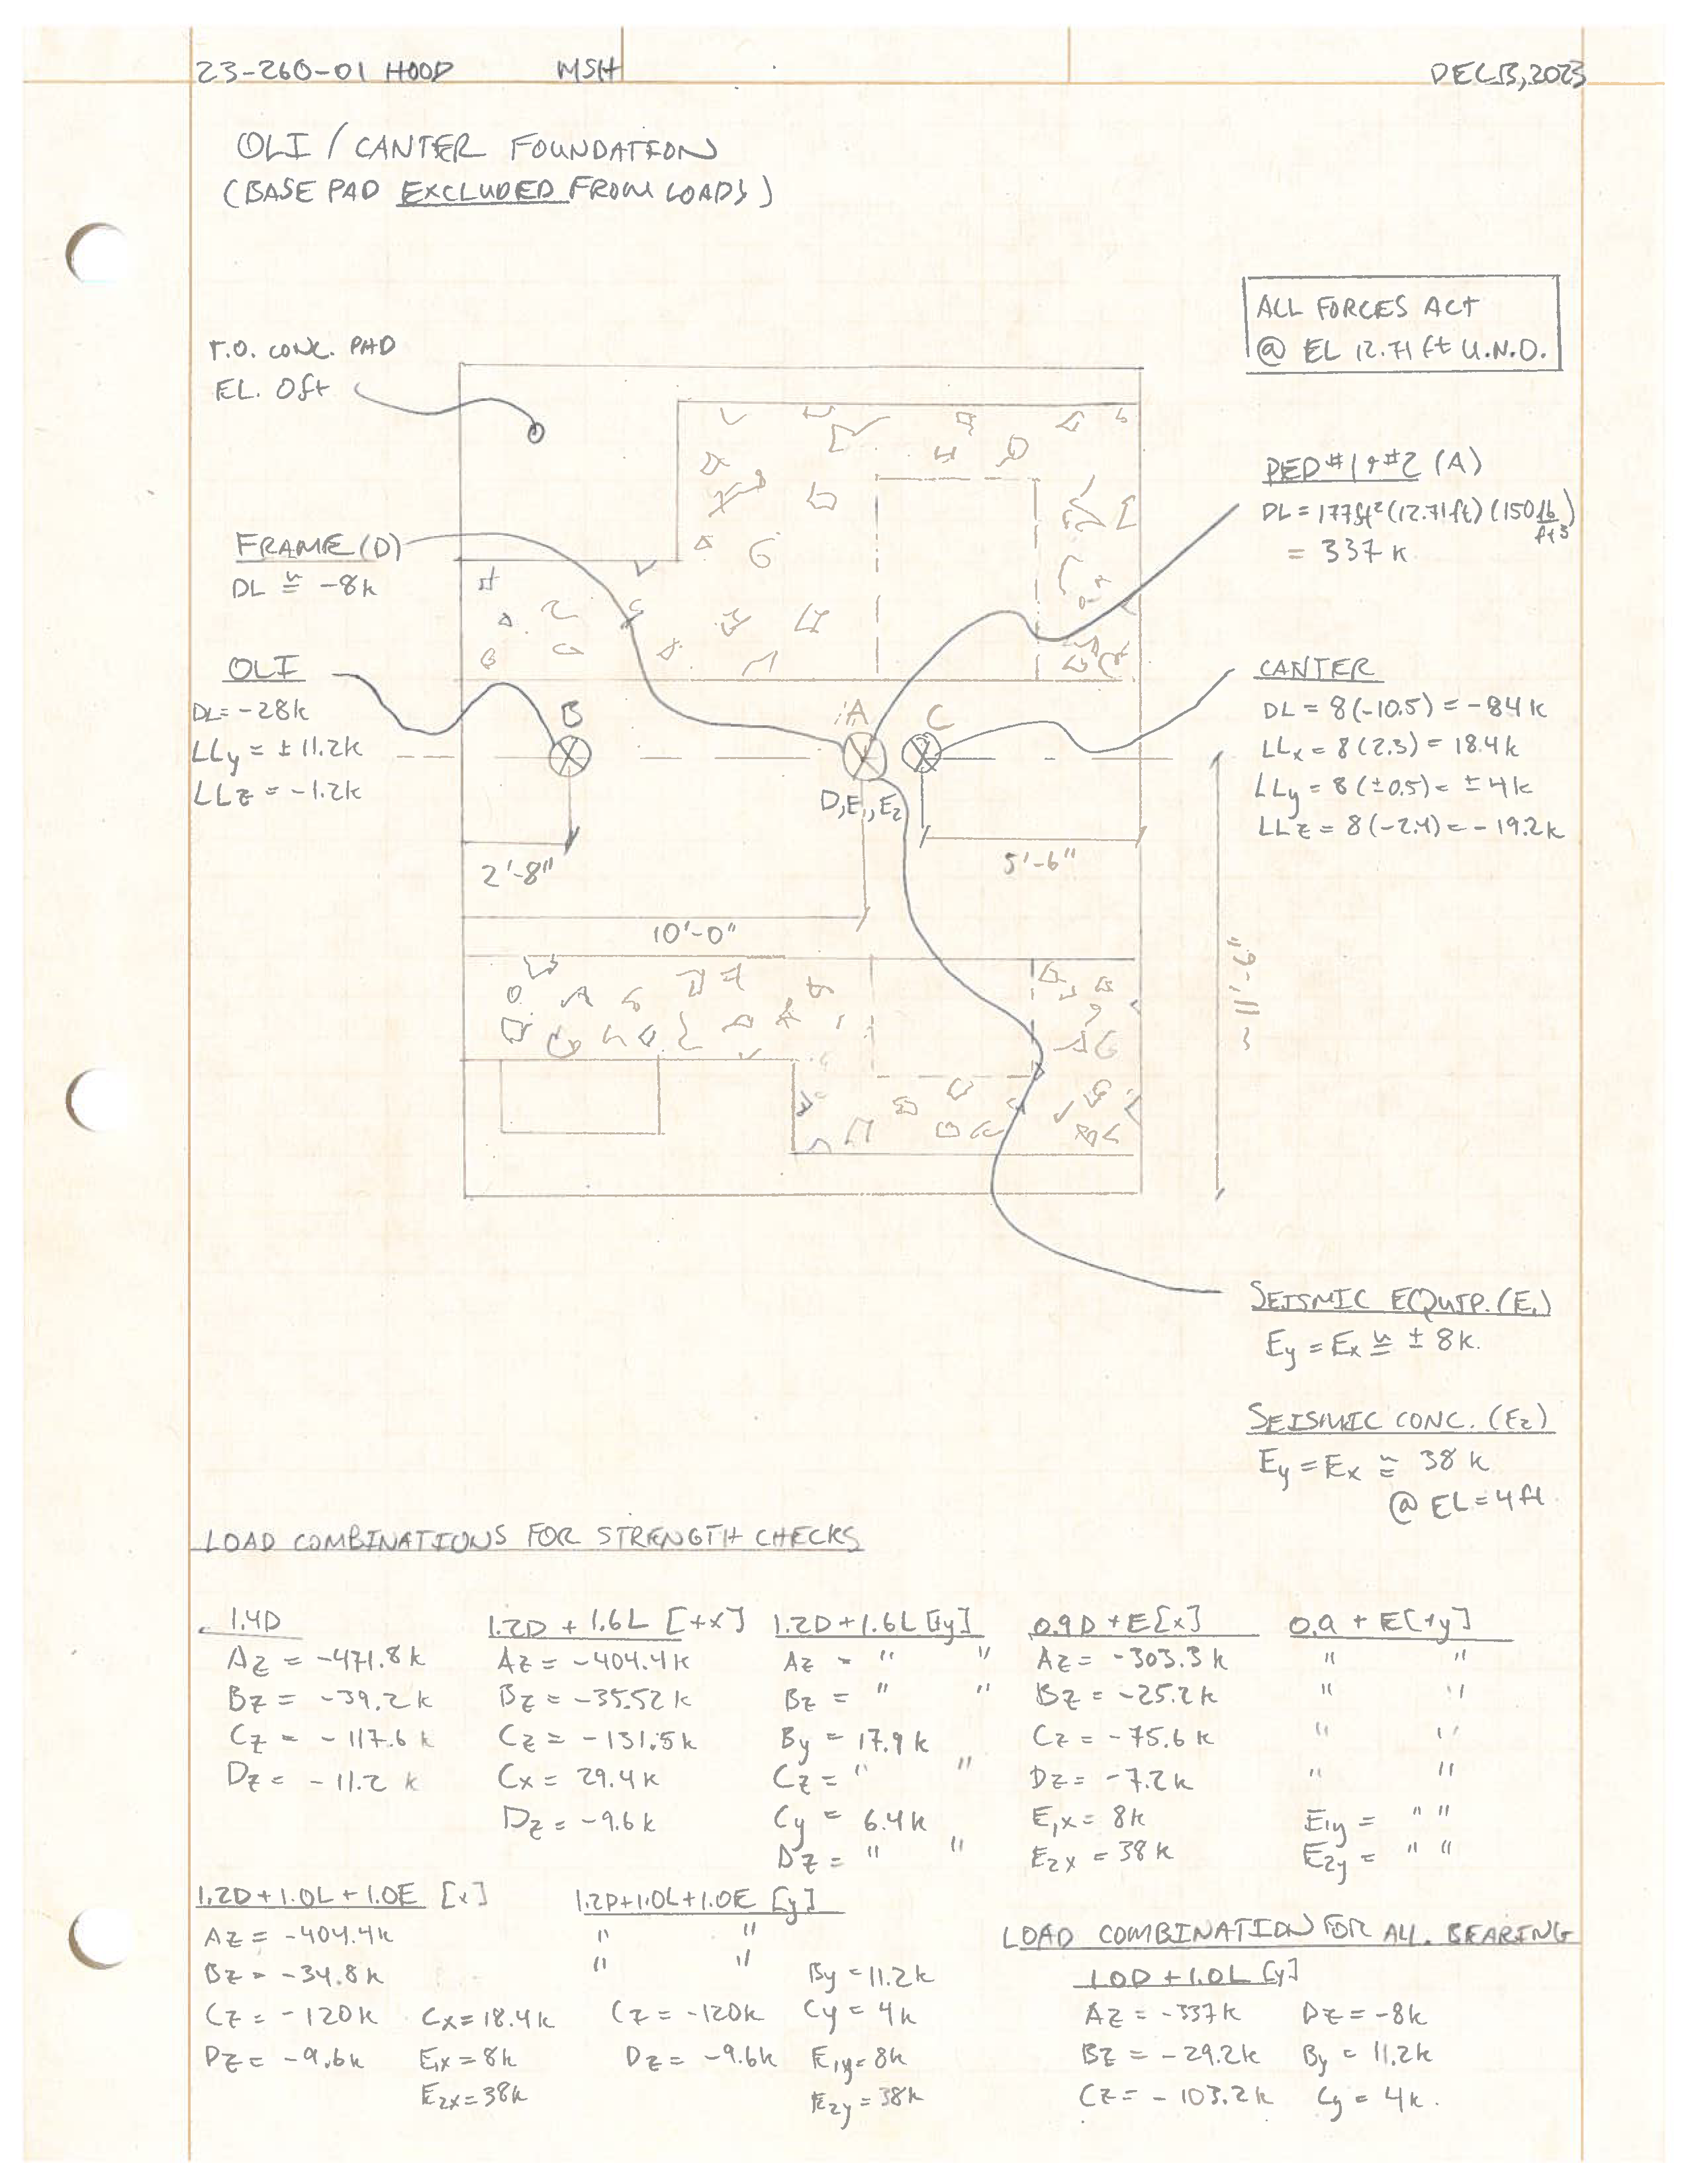 23-260-01 HOOD MSH DEC 13, 2023
OLI / CANTER FOUNDATION
(BASE PAD EXCLUDED FROM LOADS)
ALL FORCES ACT
@ EL 12.71 ft U.N.O.
T.O. CONC. PAD
EL. 0ft
PED #1 & #2 (A)
DL = 177ft²(12.71ft)(150 lb/ft³)
= 337 K
FRAME (D)
DL ≅ -8k
OLI
DL= -28k
LLy = ± 11.2k
LLz = -1.2k
B
A
C
D,E₁,E₂
CANTER
DL = 8(-10.5) = -84k
LLx = 8(2.3) = 18.4k
LLy = 8(±0.5) = ±4k
LLz = 8(-2.4) = -19.2k
2'-8"
5'-6"
10'-0"
~ 11'-6"
SEISMIC EQUIP. (E₁)
Ey = Ex ≅ ± 8k.
SEISMIC CONC. (E2)
Ey = Ex ≅ 38 k
@ EL = 4ft.
LOAD COMBINATIONS FOR STRENGTH CHECKS
1.4D
Az = -471.8k
Bz = -39.2k
Cz = -117.6k
Dz = -11.2 k
1.2D + 1.6L [+x]
Az = -404.4k
Bz = -35.52k
Cz = -131.5k
Cx = 29.4k
Dz = -9.6k
1.2D+1.6L [±y]
Az = " "
Bz = " "
By = 17.9k
Cz = " "
Cy = 6.4k
Dz = " "
0.9D + E[x]
Az = -303.3k
Bz = -25.2k
Cz = -75.6k
Dz = -7.2k
E₁x = 8k
E2x = 38k
0.9 + E[+y]
" "
" "
" "
" "
E1y = " "
E2y = " "
1.2D+1.0L+1.0E [x]
Az = -404.4k
Bz = -34.8k
Cz = -120k Cx=18.4k
Dz = -9.6k E1x = 8k
E2x=38k
1.2D+1.0L+1.0E [y]
" "
" " By = 11.2k
Cz = -120k Cy = 4k
Dz = -9.6k E1y= 8k
E2y = 38k
LOAD COMBINATION FOR ALL. BEARING
1.0D + 1.0L [y]
Az = -337k Dz = -8k
Bz = -29.2k By = 11.2k
Cz = -103.2k Cy = 4k.